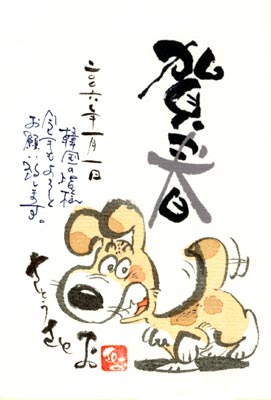 賀春
二〇〇六年一月一日
韓国の皆様
今年もよろしく
お願い致します。
さとうさとお